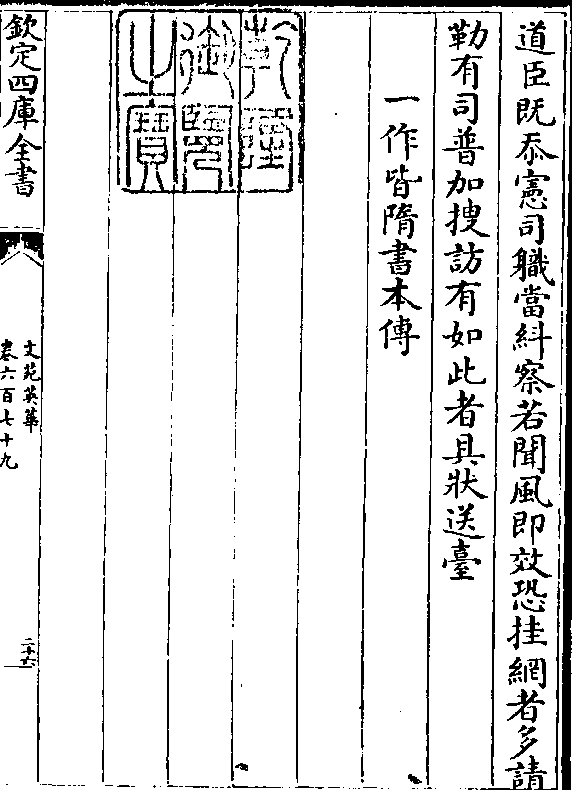 道臣既忝憲司職當糾察若聞風即效恐挂網者多請
勒有司普加搜訪有如此者具狀送臺
一作皆隋書本傳
乾隆御覽之寶
欽定四庫全書
文苑英華
卷六百七十九
二十六